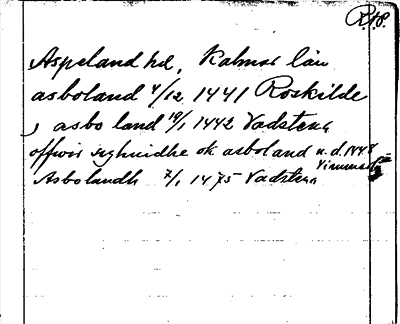 R.18.
Aspeland hd, Kalmar län
asboland 4/12 1441 Roskilde
, asbo land 19/1 1442 Vadstena
offwir syhuidhe ok asboland u.d. 1448
Vimmerby
Asbolandh 7/1 1475 Vadstena